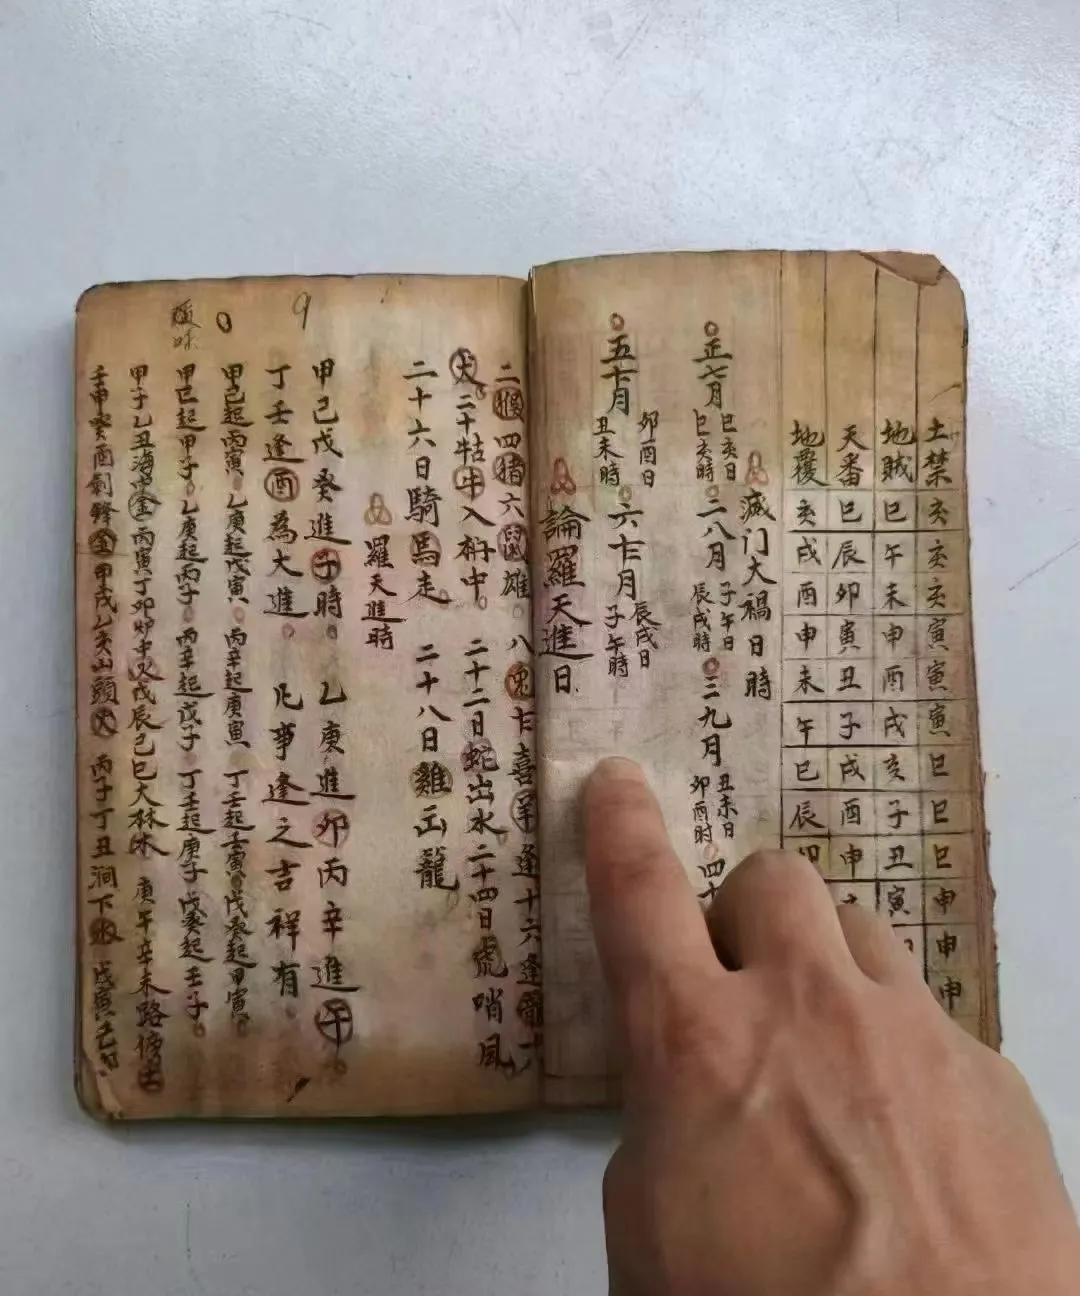 土禁 亥 亥 亥 寅 寅 寅 巳 巳 巳 申 申 申
地贼 巳 午 未 申 酉 戌 亥 子 丑 寅
天番 巳 辰 卯 寅 丑 子 戌 酉 申
地覆 亥 戌 酉 申 未 午 巳 辰 卯
滅门大禍日時
正七月 巳亥日 巳亥時 二八月 子午日 辰戌時 三九月 丑未日 卯酉时 四十
五十月 卯酉日 丑未時 六十二月 辰戌日 子午時
論羅天進日
二猴四猪六鼠雄 八兔十喜羊逢十六逢龍十
犬 二十牯牛入 中 二十二日蛇出水 二十四日虎哨風
二十六日騎馬走 二十八日雞 龍
羅天進時
甲己戊癸進子時 乙庚進卯丙辛進午
丁壬逢酉為大進 凡事逢之吉祥有
甲己起丙寅 乙庚起戊寅 丙辛起庚寅 丁壬起壬寅 戊癸起甲寅
甲己起甲子 乙庚起丙子 丙辛起戊子 丁壬起庚子 戊癸起壬子
甲子乙丑海中金 丙寅丁卯炉中火 戊辰己巳大林木 庚午辛未路傍土
壬申癸酉劍鋒金 甲戌乙亥山頭火 丙子丁丑澗下水 戊寅己卯
9